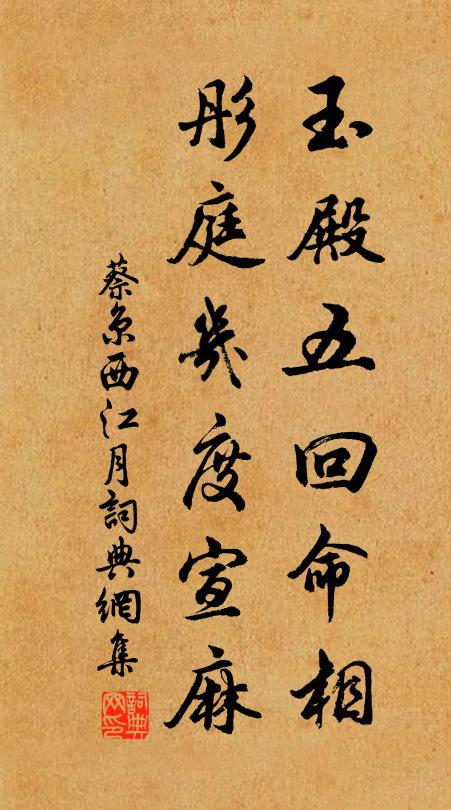 玉殿五回命相
彤庭幾度宣麻
蔡京西江月詞典網集
詞典網印